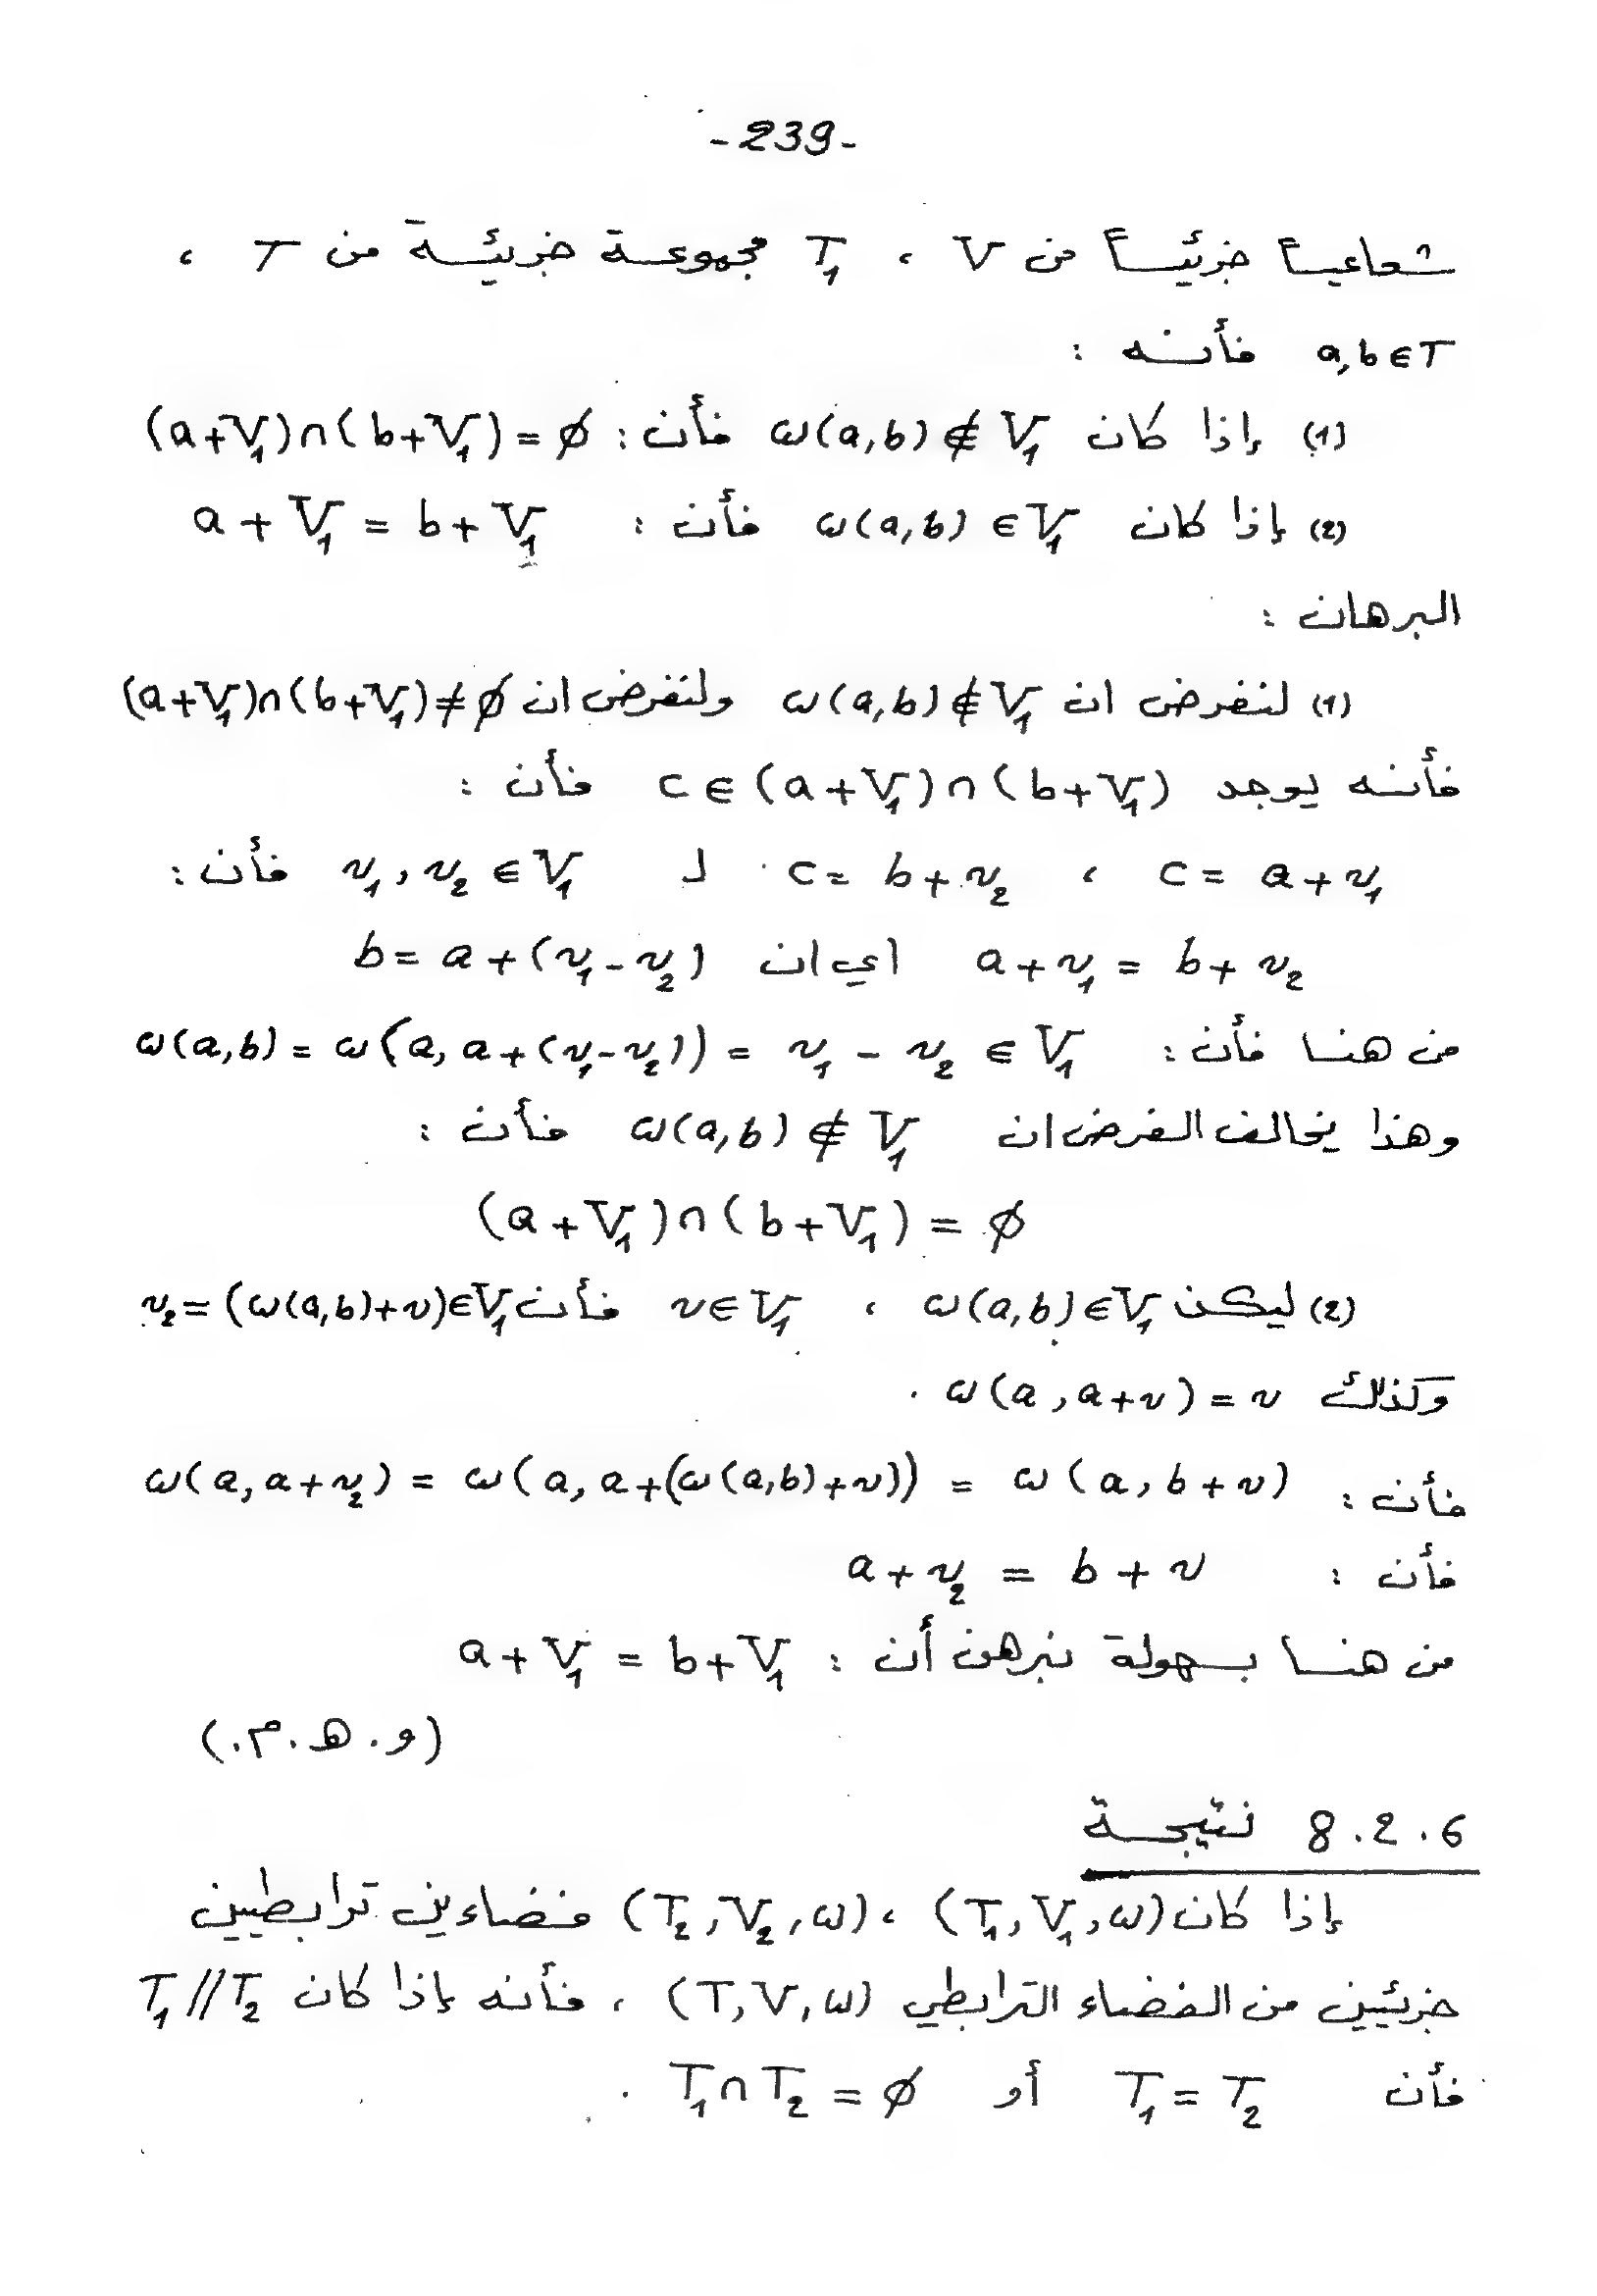 -239-
شعاعياً جزئياً من V ، T₁ مجموعة جزئية من T ،
a,b∈T فأنه :
(1) إذا كان ω(a,b)∉V₁ فأن : (a+V₁)∩(b+V₁)=∅
(2) إذا كان ω(a,b)∈V₁ فأن : a+V₁=b+V₁
البرهان :
(1) لنفرض ان ω(a,b)∉V₁ ولنفرض ان (a+V₁)∩(b+V₁)≠∅
فأنه يوجد c∈(a+V₁)∩(b+V₁) فأن :
c=a+v₁ ، c=b+v₂ لـ v₁,v₂∈V₁ فأن :
a+v₁=b+v₂ اي ان b=a+(v₁-v₂)
من هنا فأن : ω(a,b)=ω(a,a+(v₁-v₂))=v₁-v₂∈V₁
وهذا يخالف الفرض ان ω(a,b)∉V₁ فأن :
(a+V₁)∩(b+V₁)=∅
(2) ليكن ω(a,b)∈V₁ ، v∈V₁ فأن v₂=(ω(a,b)+v)∈V₁
وكذلك ω(a,a+v)=v .
فأن : ω(a,a+v₂)=ω(a,a+(ω(a,b)+v))=ω(a,b+v)
فأن : a+v₂=b+v
من هنا بسهولة نبرهن أن : a+V₁=b+V₁
(و.هـ.م.)
8.2.6 نتيجة
إذا كان (T₁,V₁,ω) ، (T₂,V₂,ω) فضاءين ترابطيين
جزئيين من الفضاء الترابطي (T,V,ω) ، فأنه إذا كان T₁//T₂
فأن T₁=T₂ أو T₁∩T₂=∅ .